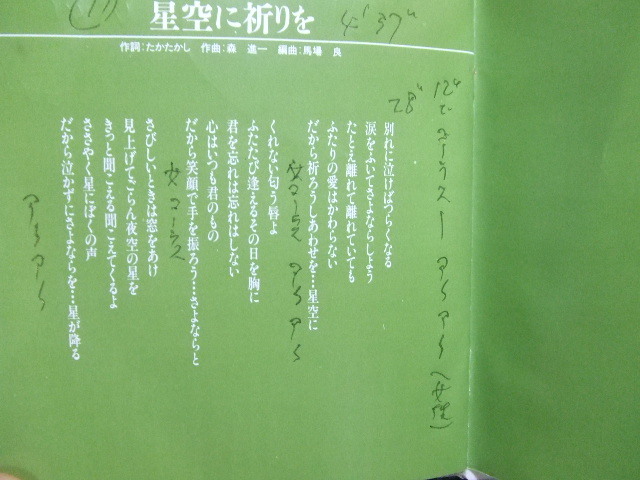 (11)
星空に祈りを
4'37"
作詞:たかたかし 作曲:森 進一 編曲:馬場 良
12"でコーラス ー アヽアヽ(女性)
28"
別れに泣けばつらくなる
涙をふいてさよならしよう
たとえ離れて離れていても
ふたりの愛はかわらない
だから祈ろうしあわせを…星空に
女コーラス アヽアヽ
くれない匂う唇よ
ふたたび逢えるその日を胸に
君を忘れは忘れはしない
心はいつも君のもの
だから笑顔で手を振ろう…さよならと
女コーラス
さびしいときは窓をあけ
見上げてごらん夜空の星を
きっと聞こえる聞こえてくるよ
ささやく星にぼくの声
だから泣かずにさよならを…星が降る
アヽアヽ